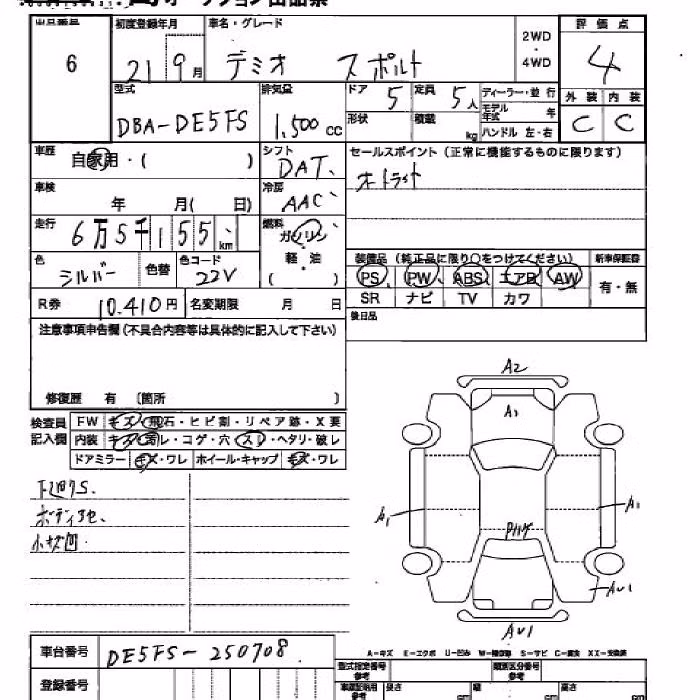 出品番号 初度登録年月 車名・グレード 2WD・4WD 評価点
6 21 9月 デミオ スポルト 4
型式 排気量 ドア 定員 ディーラー・並行 外装 内装
DBA-DE5FS 1,500 cc 5 5人 モデル年式 年 C C
形状 積載 kg ハンドル 左・右
車歴 自家用・( ) シフト DAT セールスポイント(正常に機能するものに限ります)
車検 年 月( 日) 冷房 AAC オートライト
走行 6万5千155 km 燃料 ガソリン
軽・油
( )
色 シルバー 色替 色コード 22V
装備品 (純正品に限り○をつけてください) 新車保証書
PS PW ABS エアB AW 有・無
SR ナビ TV カワ
R券 10,410円 名変期限 月 日
後日品
注意事項申告欄(不具合内容等は具体的に記入して下さい)
修復歴 有 〔箇所 〕
検査員記入欄 FW キズ・飛石・ヒビ割・リペア跡・X要
内装 キズ・汚レ・コゲ・穴・スレ・ヘタリ・破レ
ドアミラー キズ・ワレ ホイール・キャップ キズ・ワレ
下廻りS.
小キズ凹.
A2
A1
A1
A1
AU1
AU1
A-キズ E-エクボ U-凹み S-サビ C-腐食 XX-交換済
車台番号 DE5FS-250708
登録番号
型式指定番号 参考 類別区分番号 参考
長さ 幅 高さ